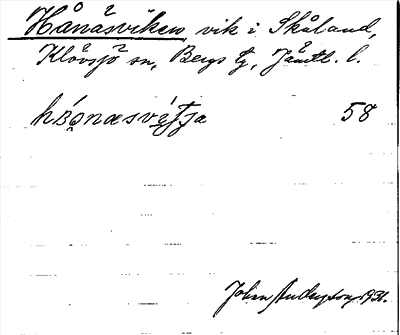 Hånåsviken, vik i Skåland,
Klövsjö sn, Bergs tg, Jämtl. l.
58
John Anderson 1931.